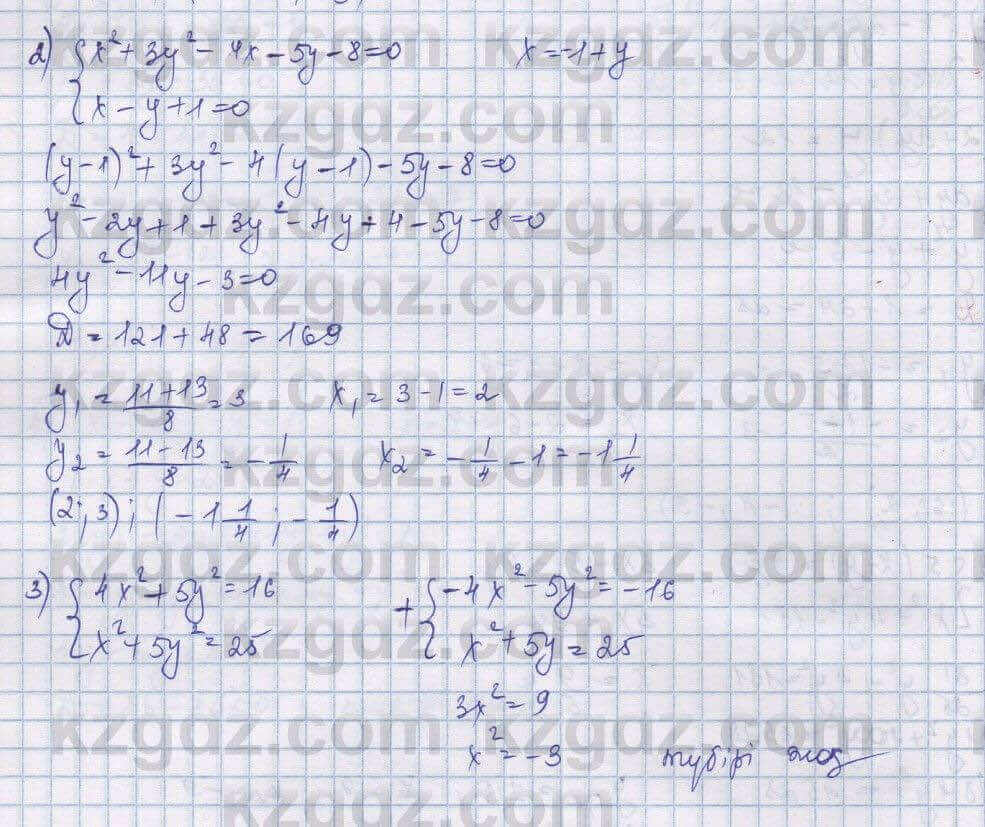 2) { x² + 3y² - 4x - 5y - 8 = 0    x = -1 + y
{ x - y + 1 = 0
(y - 1)² + 3y² - 4(y - 1) - 5y - 8 = 0
y² - 2y + 1 + 3y² - 4y + 4 - 5y - 8 = 0
4y² - 11y - 3 = 0
D = 121 + 48 = 169
y₁ = (11 + 13)/8 = 3    x₁ = 3 - 1 = 2
y₂ = (11 - 13)/8 = -1/4    x₂ = -1/4 - 1 = -1 1/4
(2; 3); (-1 1/4; -1/4)
3) { 4x² + 5y² = 16    + { -4x² - 5y² = -16
{ x² + 5y² = 25    { x² + 5y = 25
3x² = 9
x² = -3    түбірі жоқ
kzgdz.com